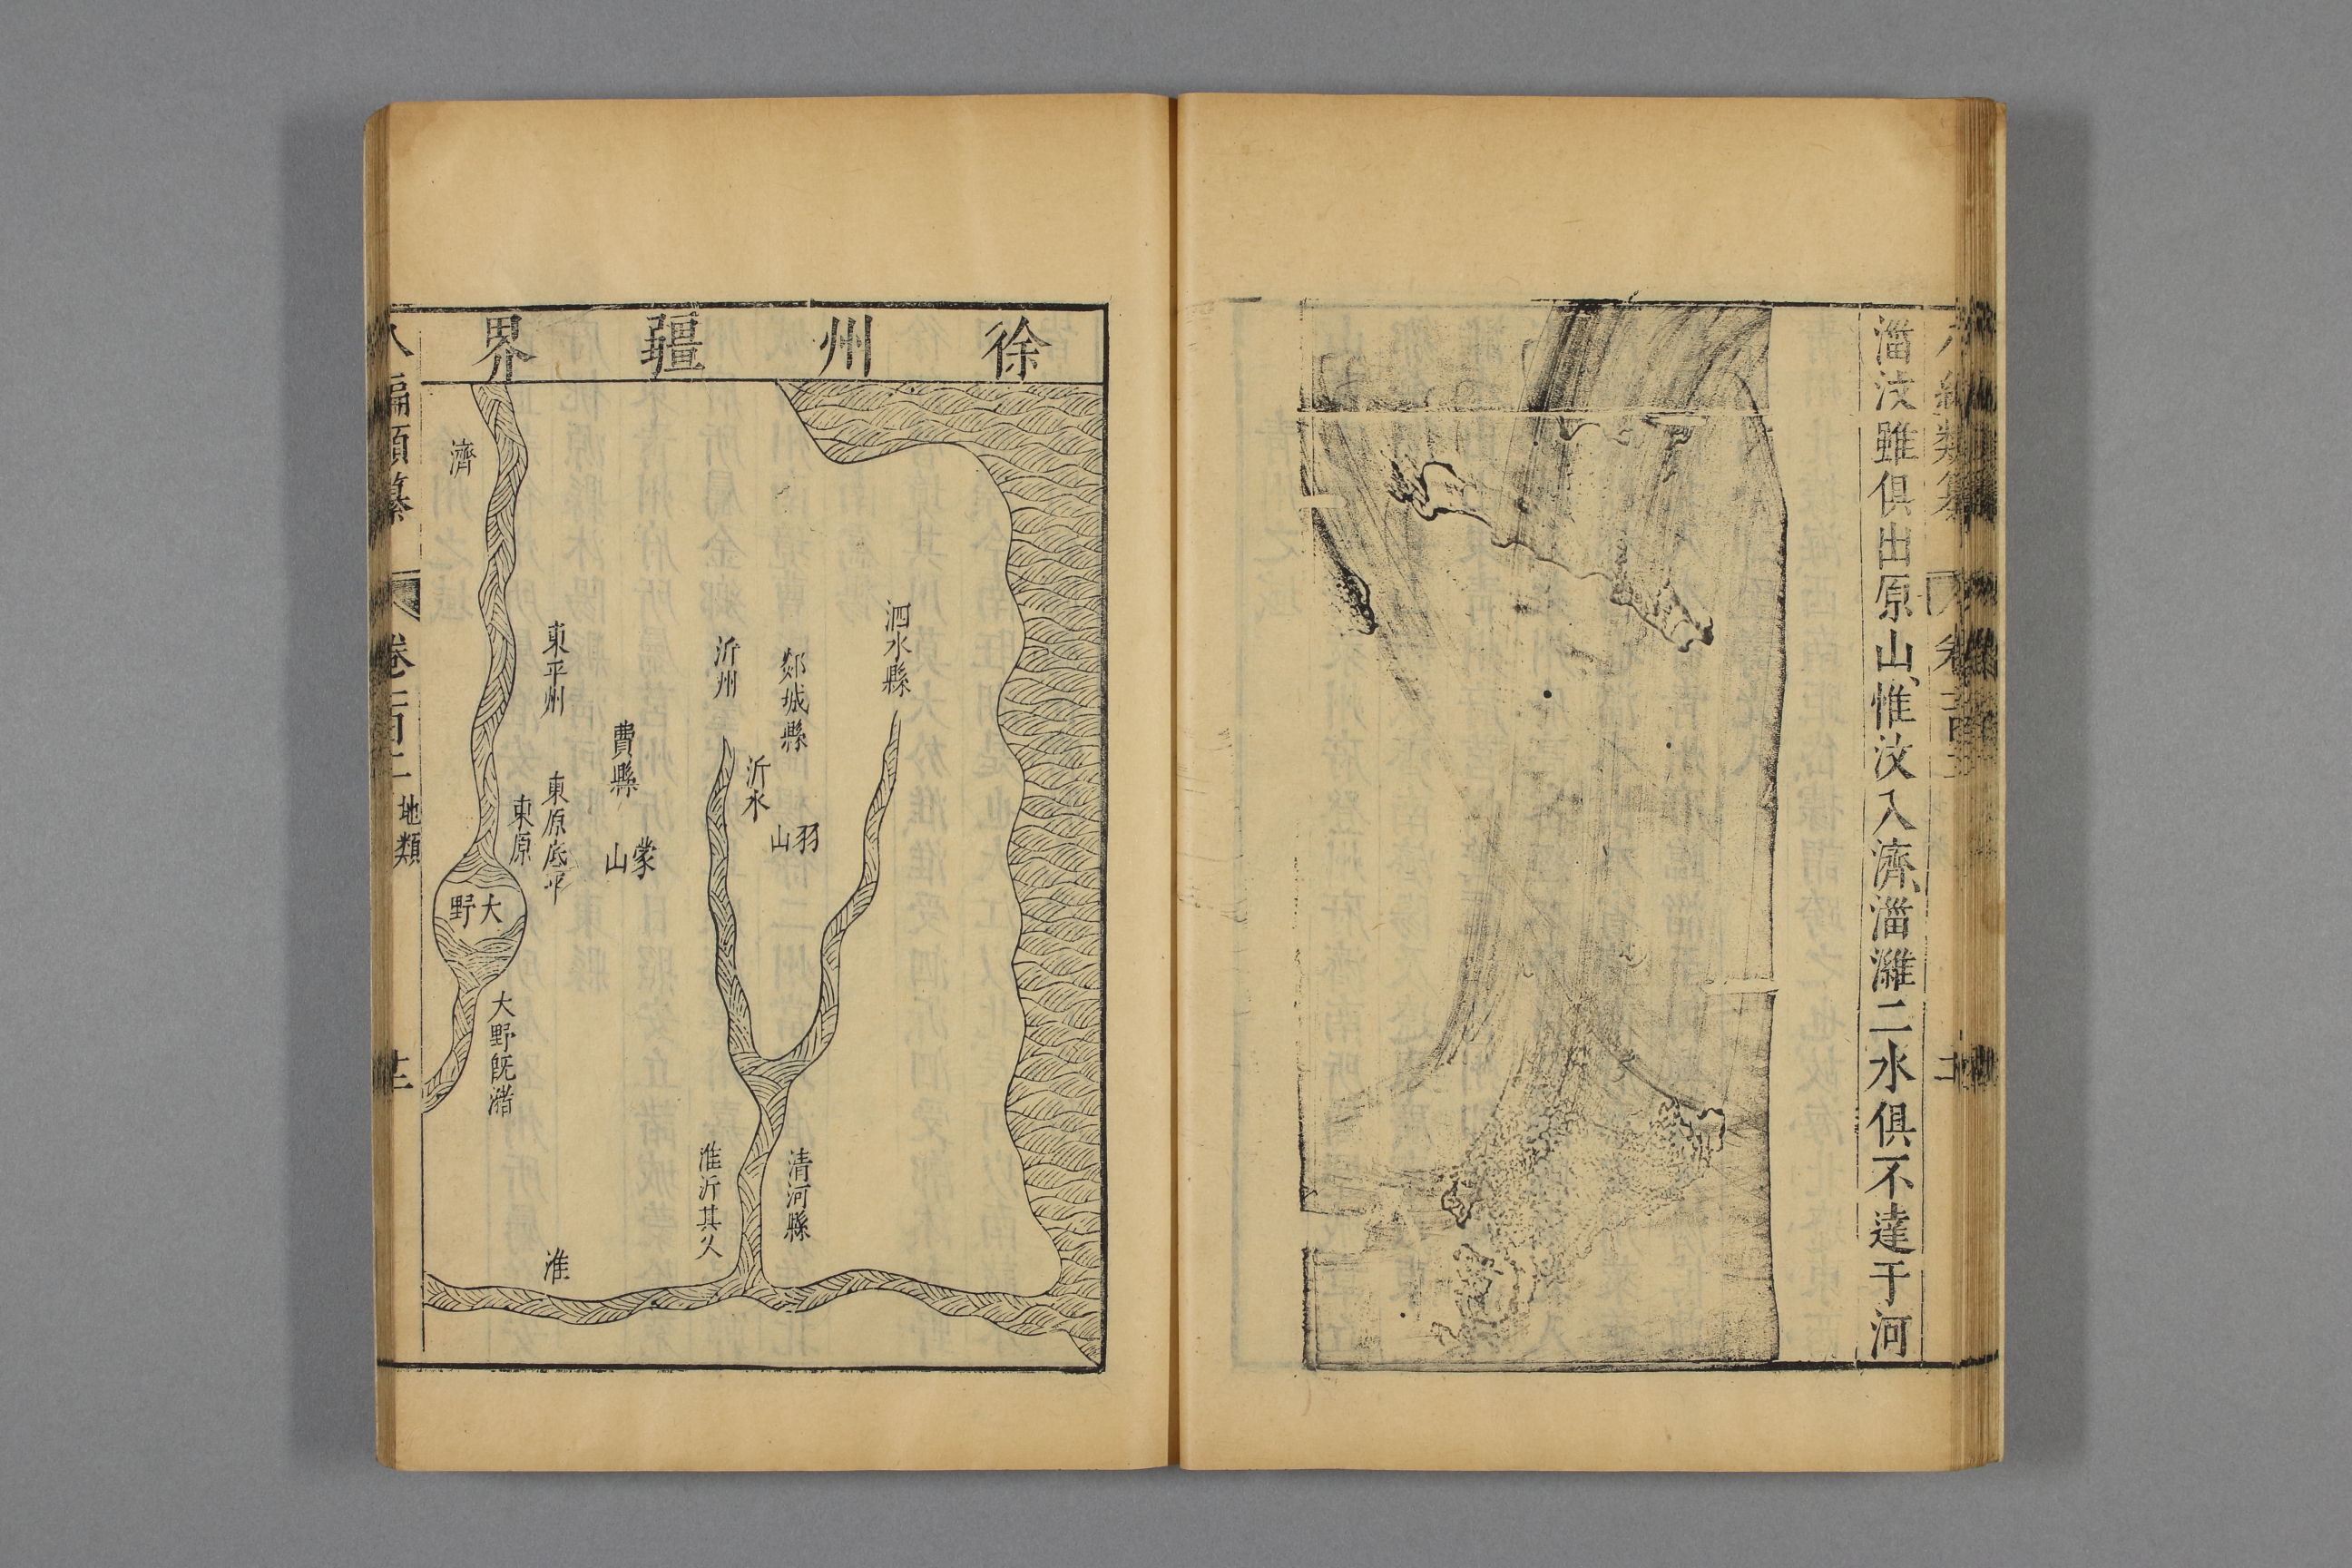 淄汶雖俱出原山惟汶入濟淄濰二水俱不達于河
徐州疆界
泗水縣
郯城縣
羽山
沂水
沂州
清河縣
淮沂其乂
蒙山
費縣
東平州
東原底平
東原
淮
大野既潴
大野
濟
編類纂
卷
地類